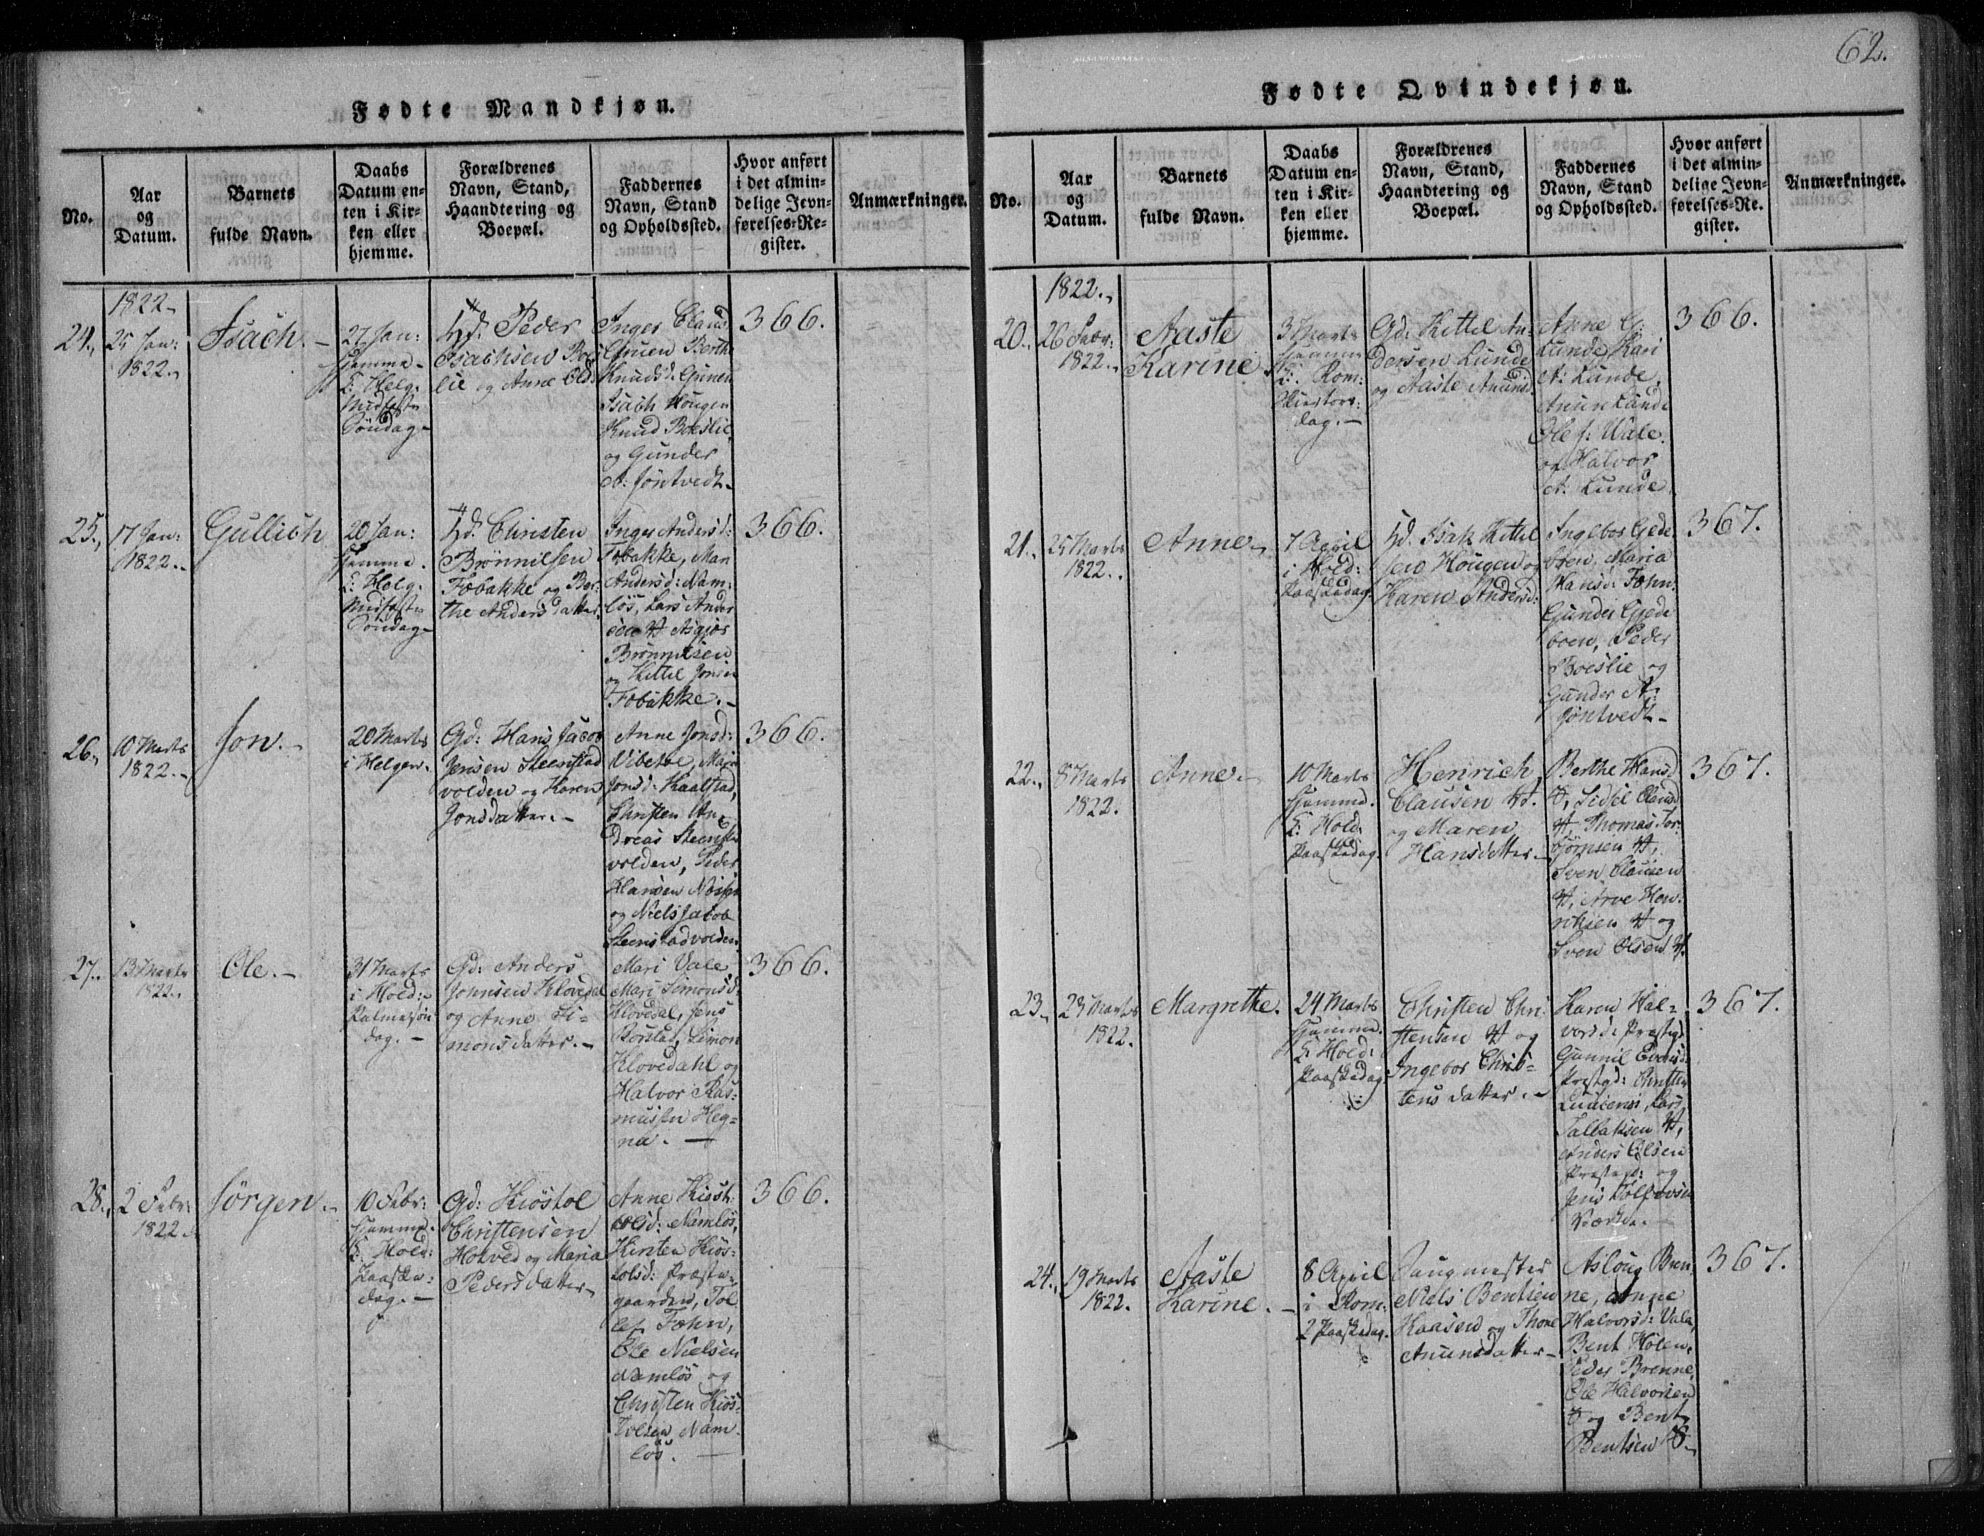 62.
Fødte Mandkjøn.
No.
Aar
og
Datum.
Barnets
fulde Navn.
Daabs
Datum en-
ten i Kir-
ken eller
hjemme.
Forældrenes
Navn, Stand,
Haandtering og
Boepæl.
Faddernes
Navn, Stand
og Opholdssted.
Hvor anført
i det almin-
delige Jevn-
førelses-Re-
gister.
Anmærkninger.
24.
1822
25 Jan:
1822.
Isach.
27 Jan:
hjemme
Helg:
Midfaste
Søndag
Hd: Peder
Isachsen Boes
lie og Anne Old:
Inger Claus
Gunen Berthe
Knudsd: Gunen
Isach Hougen
Knud Boeslie
og Gunder
A: Jøntvedt
366.
25.
17 Jan:
1822.
Gullich
20 Jan:
hjemme.
Helg:
Midfaste
Søndag
Hd: Christen
Brønnilsen
Fobakke og Ber-
the Andersdatter
Inger Andersd:
Fobakke, Mari
Andersd: Nam-
løs, Lars Ander
sen Asgier
Brønnilsen
og Kittil Jonsen
Fobakke.
366.
26.
10 Marts
1822.
Jon.
20 Marts
i Helgen.
Gd: Hans Jacob
Jensen Steenstad
volden og Karen
Jonsdatter.
Anne Jonsd:
Vibetoe, Mari
Jonsd: Kaalstad,
Christen An-
dreas Steenstad
volden, Peder
Hansen
og Niels Jacob
Steenstadvolden
366.
27.
13 Marts
1822.
Ole.
31 Marts
i Hold:
Palmesøn
dag.
Gd: Anders
Johnsen Klovedal
og Anne Si-
monsdatter.
Mari Vale,
Mari Simonsd:
Klovedal, Jens
Simon
Klovedahl og
Halvor Ras-
mussen Heg-
na.
366.
28.
2 Febr:
1822.
Jørgen.
10 Febr:
hjemme.
Hold:
Paaske-
dag.
Gd: Kiøstol
Christensen
Holtved og Maria
Pedersdatter
Anne Kiøst-
olsd: Namløs,
Kirsten Kiøs-
tolsd: Præste-
gaarden, Tol
lef Fæhn,
Ole Nielsen
Namløs og
Christen Kiøs-
tolsen Nam-
løs.
366.
Fødte Qvindekjøn.
No.
Aar
og
Datum.
Barnets
fulde Navn.
Daabs
Datum en-
ten i Kir-
ken eller
hjemme.
Forældrenes
Navn, Stand,
Haandtering og
Boepæl.
Faddernes
Navn, Stand
og Opholdssted.
Hvor anført
i det almin-
delige Jevn-
førelses-Re-
gister.
Anmærkninger.
20.
1822.
26 Febr:
1822.
Aaste
Karine
3 Marts
hjemme
Rom:
Skiertors:
dag.
Gd: Kittel An-
dersen Lunde
og Aaste Anunds
Anne G:
Lunde, Kari
A: Lunde,
Anun Lunde
Ole J: Vale
og Halvor
A: Lunde
366.
21.
25 Marts
1822.
Anne
7 April
i Hold:
Paaskedag
Hd: Isak Kittel
sen Hougen og
Karen Andersd:
Ingebor Gjede
boen, Maria
Hansd: Fæhn
Gunder Gjede
boen, Peder
Boeslie og
Gunder A:
Jøntvedt
367.
22.
8 Marts
1822.
Anne
10 Marts
hjemme.
Hold:
Paaskedag.
Henrich
Clausen
og Maren
Hansdatter
Berthe Hansd
Sidsel Clausd
Thomas Tor-
bjørnsen
Sven Clausen
Arve Hen-
riksen og
Sven Olsen
367.
23.
23 Marts
1822.
Margrethe.
24 Marts
hjemme.
Hold:
Paaskedag
Christen Chri-
stensen og
Ingebor Chris-
tensdatter.
Karen Hal-
vorsd: Præstgd
Gunnil Evensd:
Præstgd: Christen
Lars
Sallaksen
Anders Olsen
Præstgd: og
Jens Tolfsen
367.
24.
19 Marts
1822.
Aaste
Karine.
8 April
i Rom:
2 Paaskedag.
Saugmester
Niels Bentsen
Haasen og Thone
Anunsdatter
Asloug Bren-
ne, Anne
Halvorsd: Vala,
Bent Holen,
Peder Brenne,
Ole Halvorsen
og Bent
Bentsen
367.